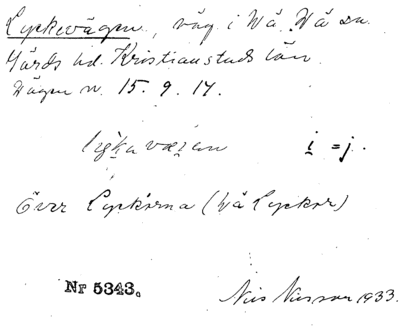 Lyckevägen, väg i Wä, Wä sn.
Gärds hd. Kristianstads län.
Vägen n. 15. 9. 14.
i = j.
Över Lyckorna (Wä Lyckor)
Nr 5343.
Nils Nilsson 1933.